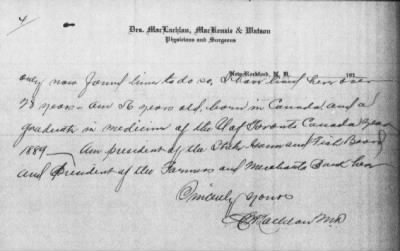 4
Drs. MacLachlan, MacKenzie & Watson
Physicians and Surgeons
New Rockford, N. D.,            191
only now found time to do so, I have lived here over
28 years - am 56 years old, born in Canada and a
graduate in medicine of the U of Toronto Canada year
1889 - Am president of the State Game and Fish Board
and President of the Farmers and Merchants Bank here
Sincerely Yours
MacLachlan MD